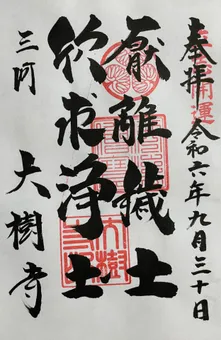 奉拝
開運
令和六年九月三十日
厭離穢土
欣求浄土
三河
大樹寺